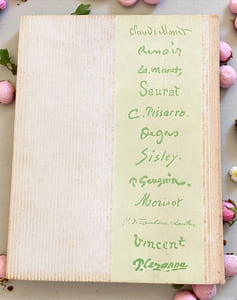 Claude Monet
Renoir
Ed. Manet,
Seurat
C. Pissarro.
Degas
Sisley.
P. Gauguin.
Morisot
Vincent
P. Cezanne